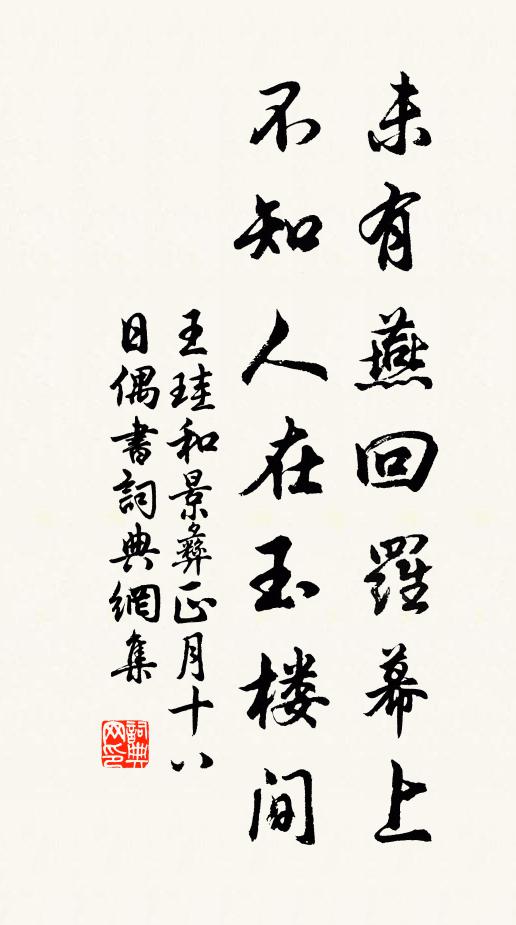 未有燕回羅幕上
不知人在玉楼间
王珪和景彝正月十八
日偶書詞典網集
詞典
网印